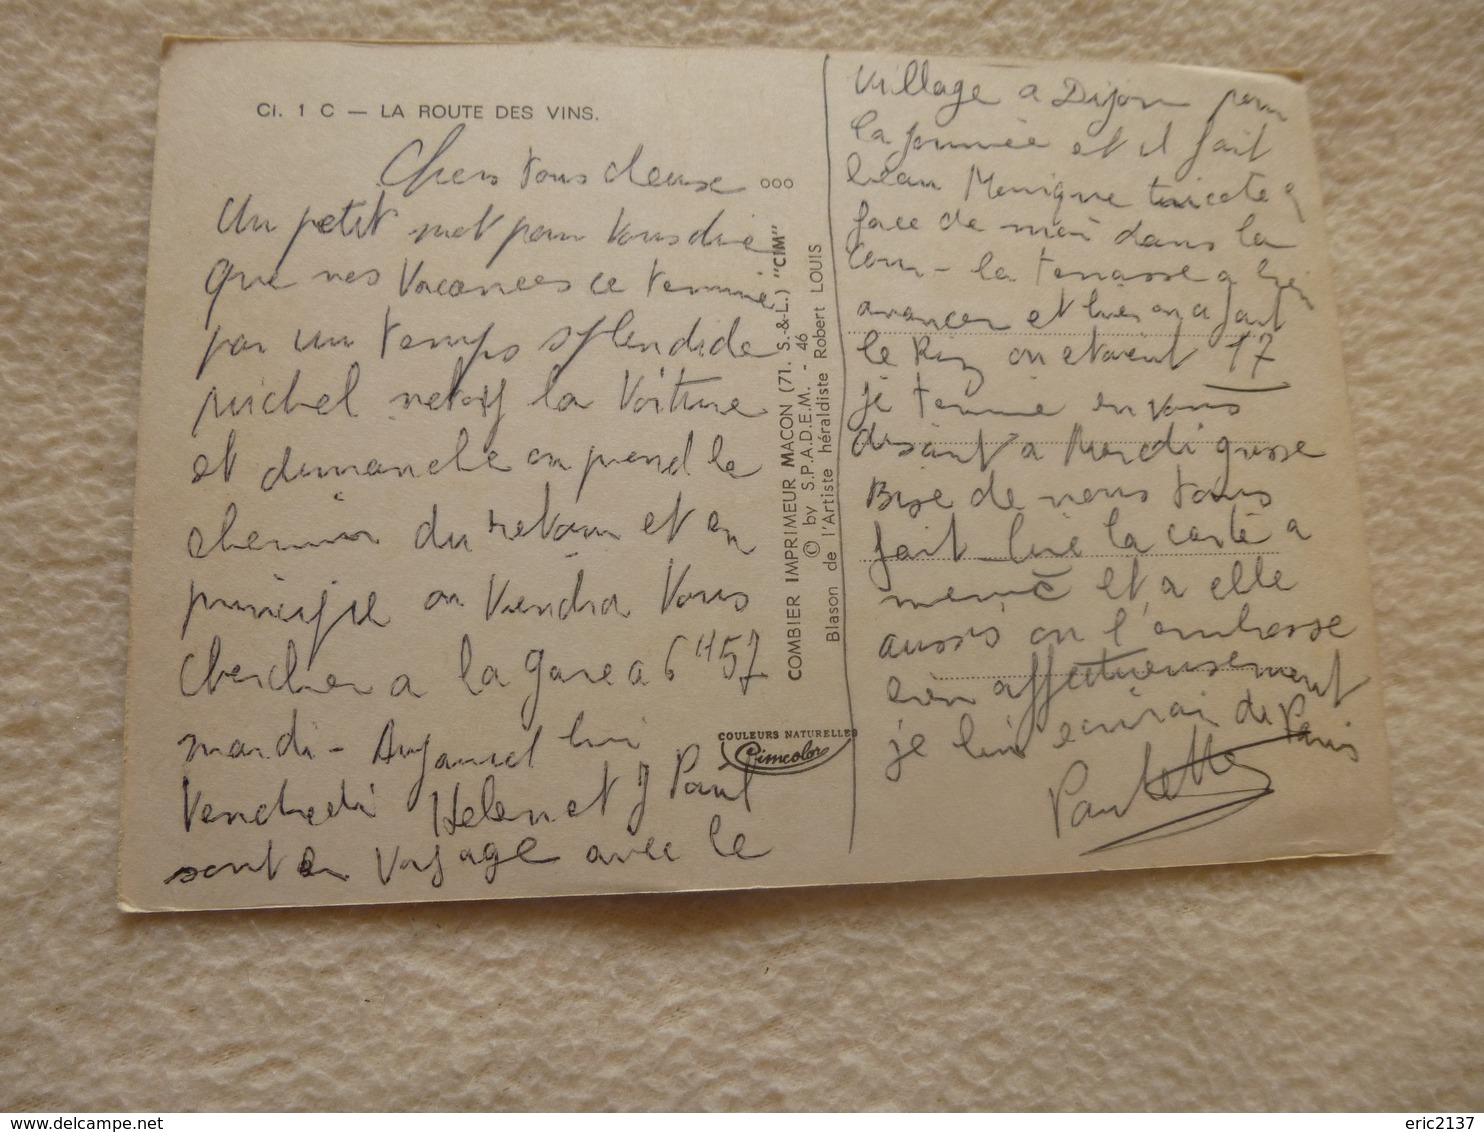 CI. 1 C — LA ROUTE DES VINS.
Chers tous deux ...
Un petit mot pour vous dire
que nos vacances ce termine
par un temps splendide
Michel netoy la voiture
et dimanche on prend le
chemin du retour et en
principe on viendra vous
chercher a la gare a 6H57
mardi - Aujourd hui
Vendredi Helen et J Paul
sont en voyage avec le
COMBIER IMPRIMEUR MACON (71. S.-&-L.) "CIM"
© by S.P.A.D.E.M. - 46
Blason de l'Artiste héraldiste Robert LOUIS
COULEURS NATURELLES
Cimcolor
village a Dijon pour
la journée et il fait
beau Monique tricote a
face de moi dans la
cour - la terrasse a bien
avancer et hier on a fait
le Riz on etaient 17
je termine en vous
disant a Mardi grosse
Bise de nous tous
fait lire la carte a
meme et a elle
aussi on l'embrasse
bien affectueusement
je lui ecrirai de Paris
Paulette
eric2137
www.delcampe.net